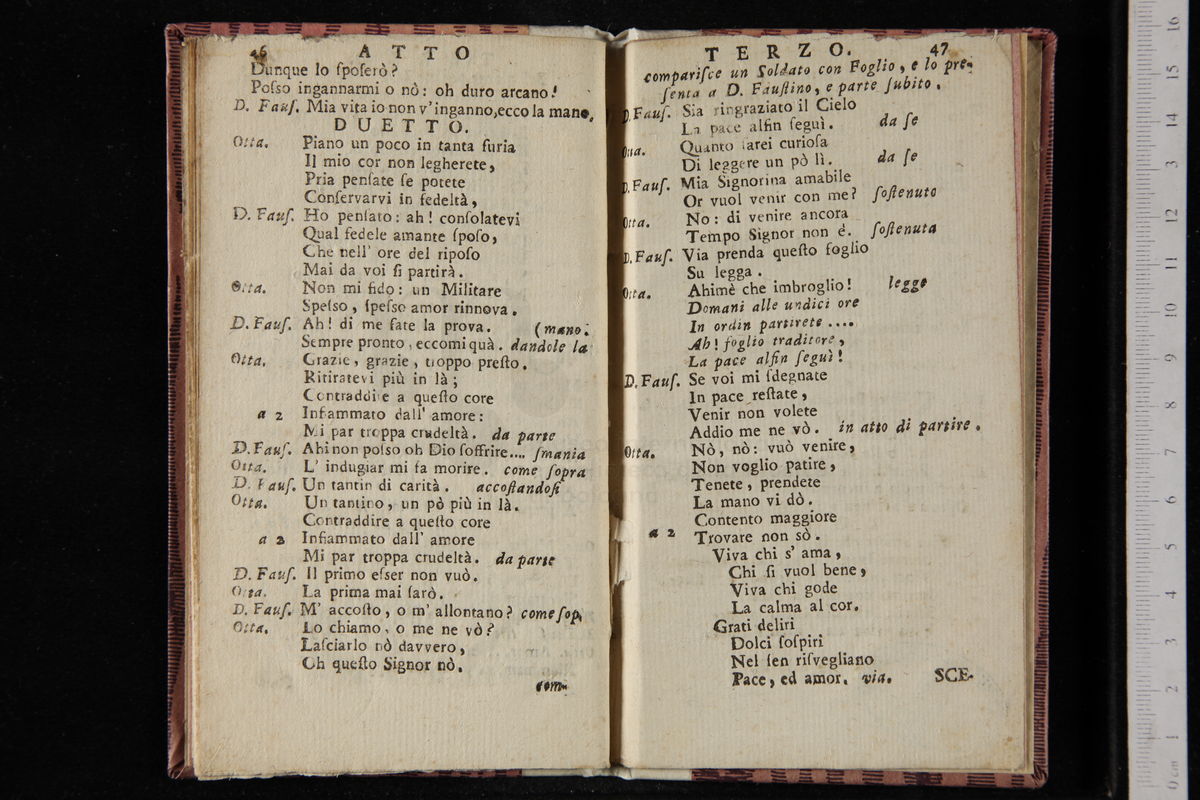 46 ATTO
Dunque lo ſpoſerò?
Poſso ingannarmi o nò: oh duro arcano!
D. Fauſ. Mia vita io non v'inganno, ecco la mano.
DUETTO.
Otta. Piano un poco in tanta furia
Il mio cor non legherete,
Pria penſate ſe potete
Conſervarvi in fedeltà,
D. Fauſ. Ho penſato: ah! conſolatevi
Qual fedele amante ſpoſo,
Che nell' ore del ripoſo
Mai da voi ſi partirà.
Otta. Non mi fido: un Militare
Speſso, ſpeſso amor rinnova.
D. Fauſ. Ah! di me fate la prova. (mano.
Sempre pronto, eccomi quà. dandole la
Otta. Grazie, grazie, troppo preſto.
Ritiratevi più in là;
Contraddire a queſto core
a 2 Infiammato dall' amore:
Mi par troppa crudeltà. da parte
D. Fauſ. Ahi non poſso oh Dio ſoffrire.... ſmania
Otta. L' indugiar mi fa morire. come ſopra
D. Fauſ. Un tantin di carità. accoſtandoſi
Otta. Un tantino, un pò più in là.
Contraddire a queſto core
a 2 Infiammato dall' amore
Mi par troppa crudeltà. da parte
D. Fauſ. Il primo eſser non vuò.
Otta. La prima mai ſarò.
D. Fauſ. M' accoſto, o m' allontano? come ſop.
Otta. Lo chiamo, o me ne vò?
Laſciarlo nò davvero,
Oh queſto Signor nò.
com-
TERZO. 47
compariſce un Soldato con Foglio, e lo pre-
ſenta a D. Fauſtino, e parte ſubito.
D. Fauſ. Sia ringraziato il Cielo
La pace alfin ſeguì. da ſe
Otta. Quanto ſarei curioſa
Di leggere un pò lì. da ſe
D. Fauſ. Mia Signorina amabile
Or vuol venir con me? ſoſtenuto
Otta. No: di venire ancora
Tempo Signor non è. ſoſtenuta
D. Fauſ. Via prenda queſto foglio
Su legga.
Otta. Ahimè che imbroglio! legge
Domani alle undici ore
In ordin partirete....
Ah! foglio traditore,
La pace alfin ſeguì!
D. Fauſ. Se voi mi ſdegnate
In pace reſtate,
Venir non volete
Addio me ne vò. in atto di partire.
Otta. Nò, nò: vuò venire,
Non voglio patire,
Tenete, prendete
La mano vi dò.
Contento maggiore
a 2 Trovare non sò.
Viva chi s' ama,
Chi ſi vuol bene,
Viva chi gode
La calma al cor.
Grati deliri
Dolci ſoſpiri
Nel ſen riſvegliano
Pace, ed amor. via. SCE-
0 cm 1 2 3 4 5 6 7 8 9 10 11 12 13 14 15 16